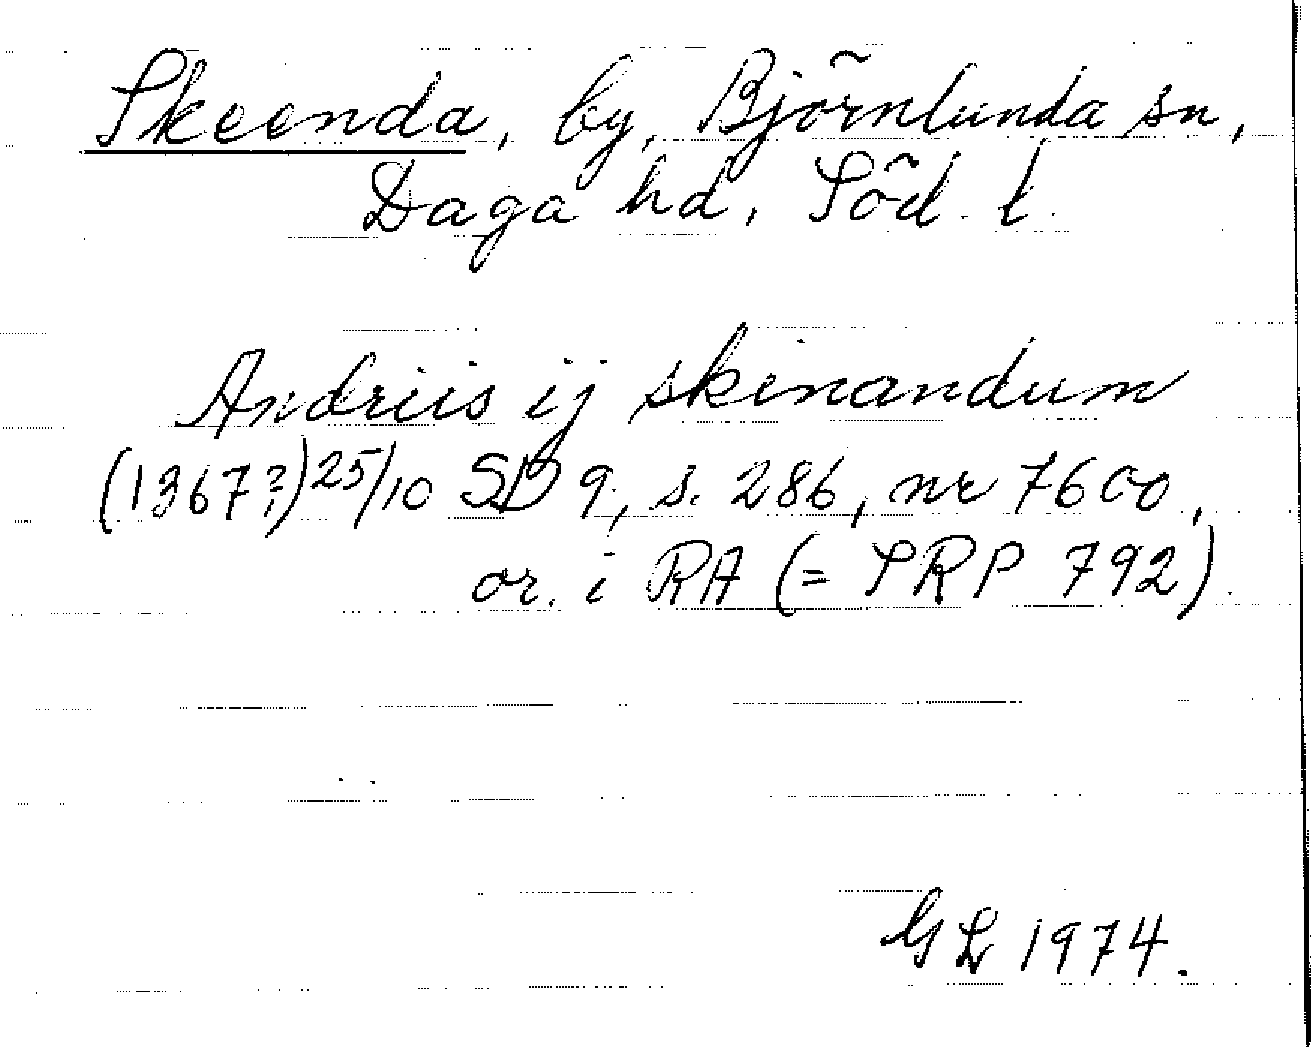 Skeenda, by, Björnlunda sn,
Daga hd, Söd. l.
Andriis ij skinandum
(1367?) 25/10 SD 9, s. 286, nr 7600,
or. i RA (= SRP 792)
GL 1974.